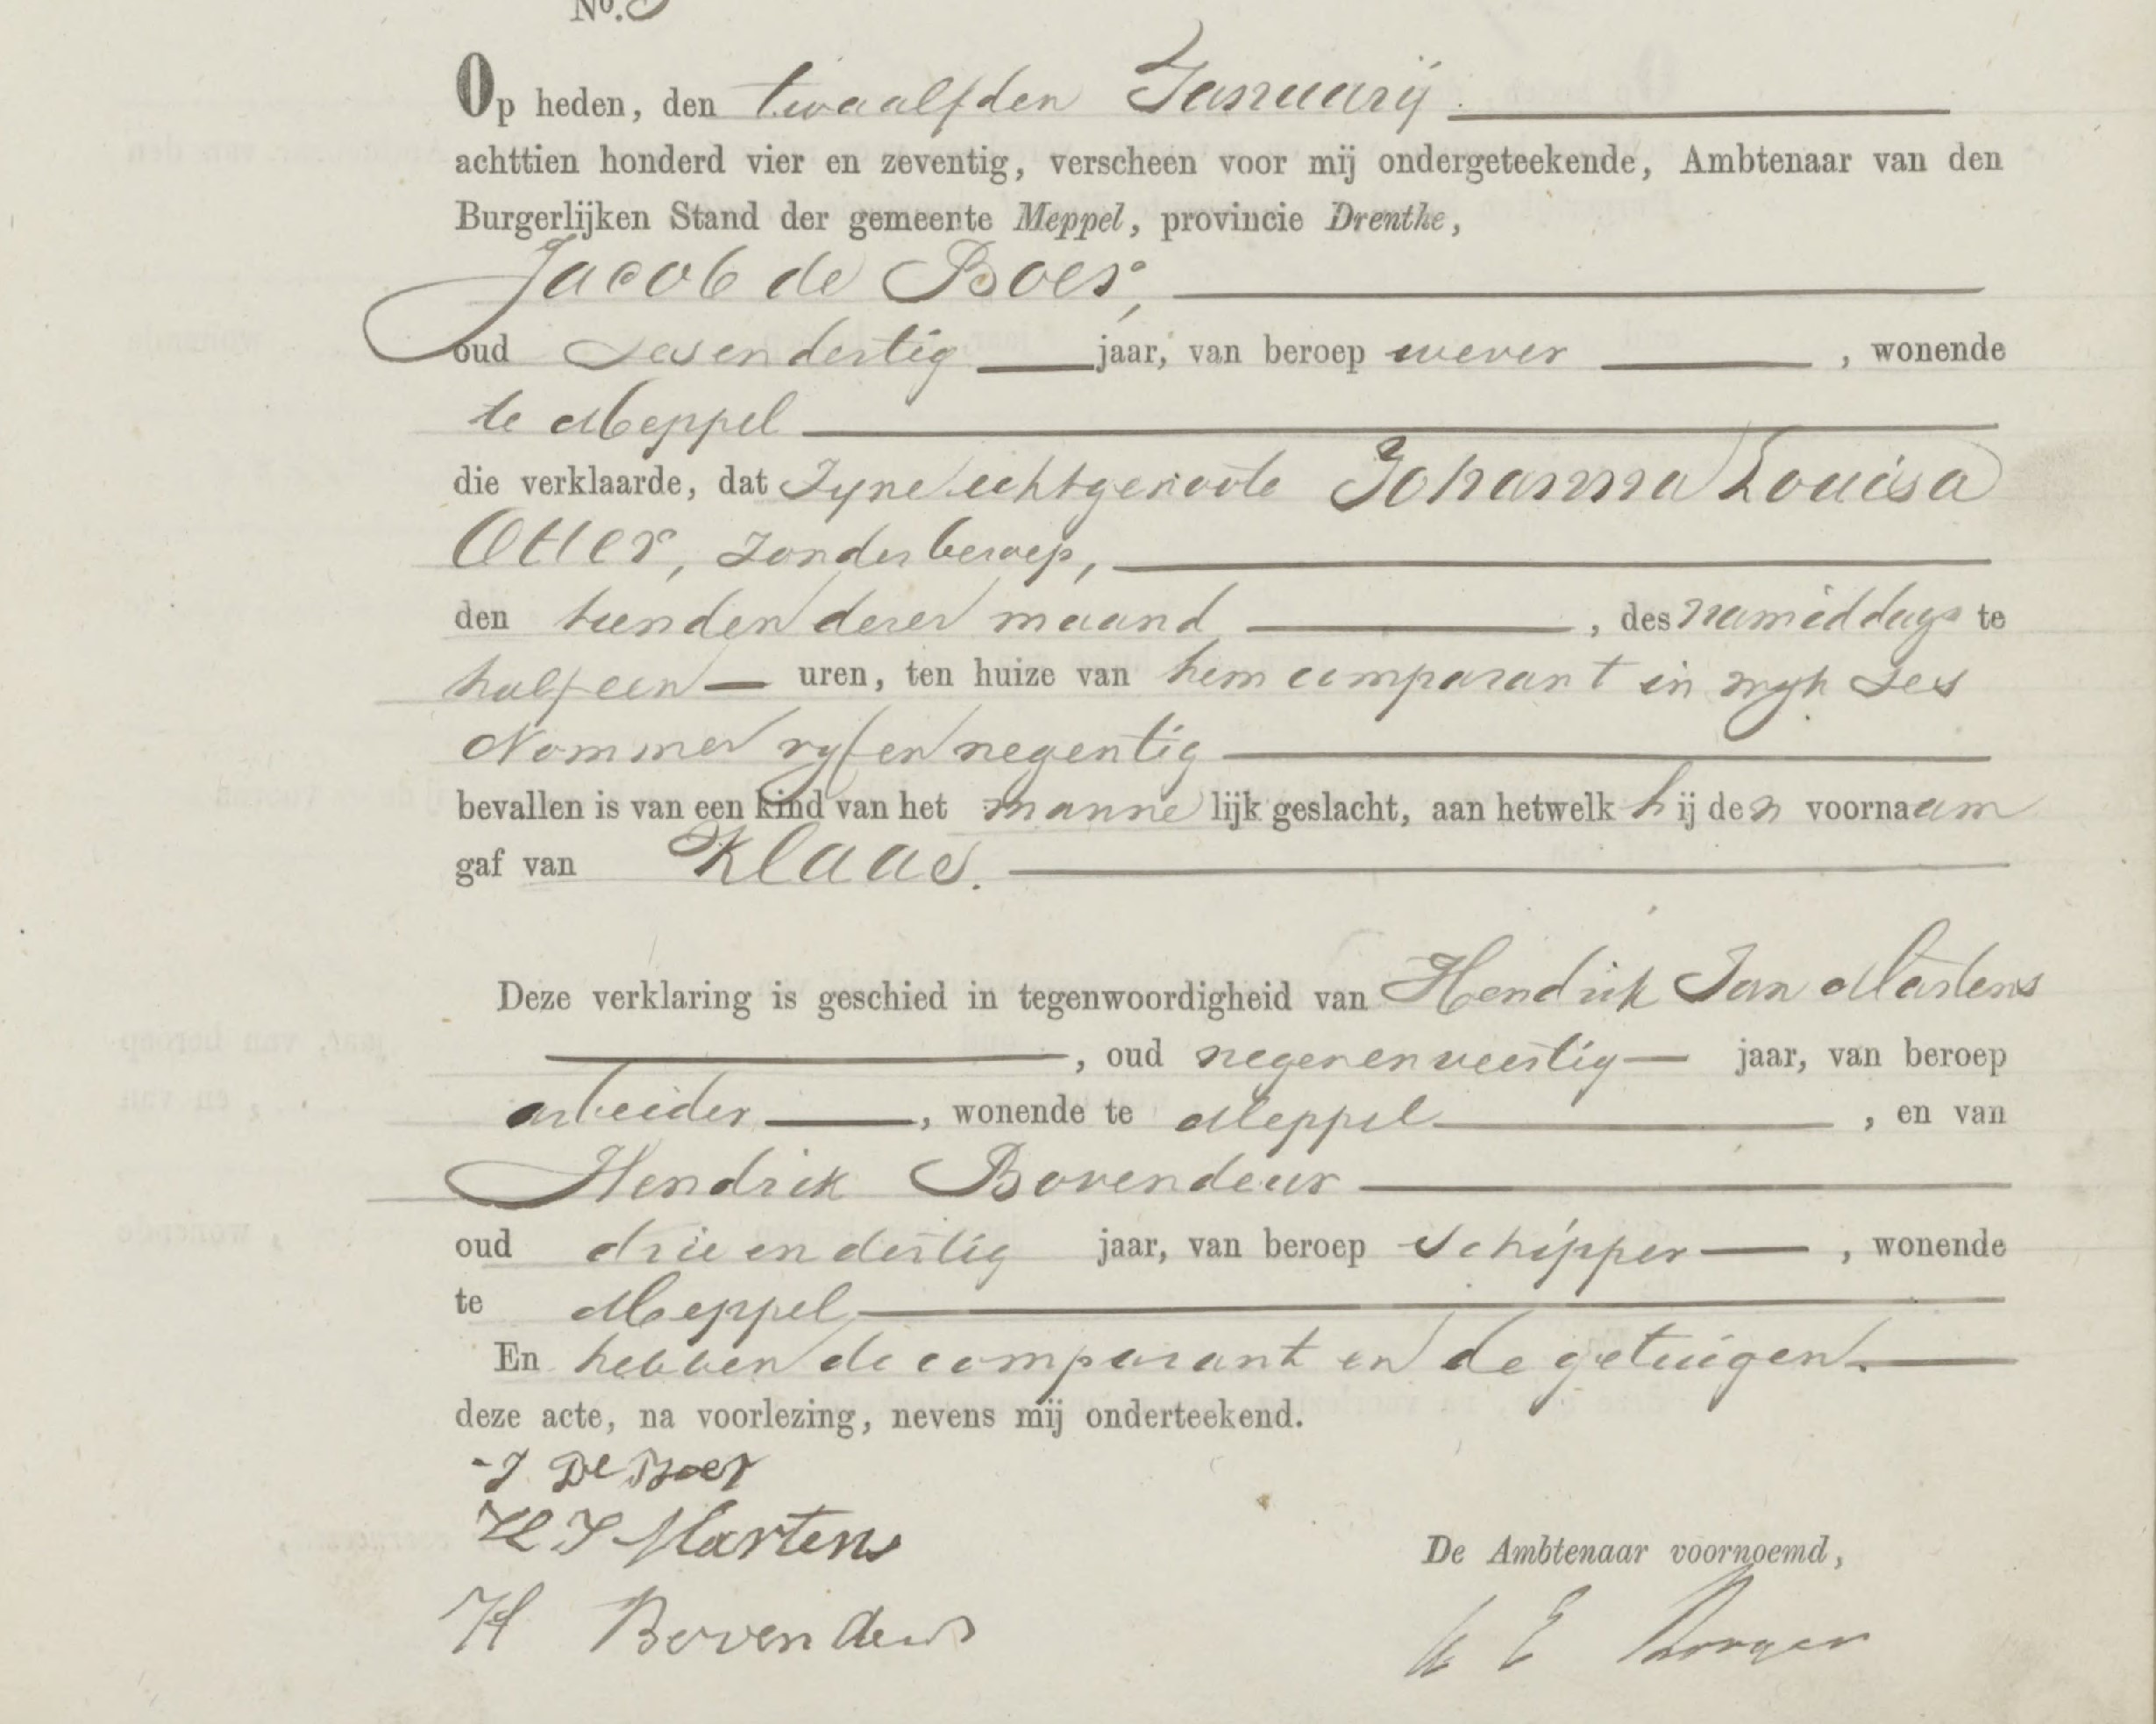 No. 5
Op heden, den twaalfden Januarij
achttien honderd vier en zeventig, verscheen voor mij ondergeteekende, Ambtenaar van den
Burgerlijken Stand der gemeente Meppel, provincie Drenthe,
Jacob de Boer,
oud zesendertig jaar, van beroep wever, wonende
te Meppel
die verklaarde, dat zyne echtgenoote Johanna Louisa
Otter, zonder beroep,
den tienden dezer maand, des namiddags te
half een uren, ten huize van hem comparant in wyk zes
Nommer vyf en negentig
bevallen is van een kind van het mannelijk geslacht, aan hetwelk hij den voornaam
gaf van Klaas.
Deze verklaring is geschied in tegenwoordigheid van Hendrik Jan Martens
, oud negenenveertig jaar, van beroep
arbeider, wonende te Meppel, en van
Hendrik Bovendeur
oud drie en dertig jaar, van beroep schipper, wonende
te Meppel,
En hebben de comparant en de getuigen
deze acte, na voorlezing, nevens mij onderteekend.
J De Boer
H J Martens
H Bovendeur
De Ambtenaar voornoemd,